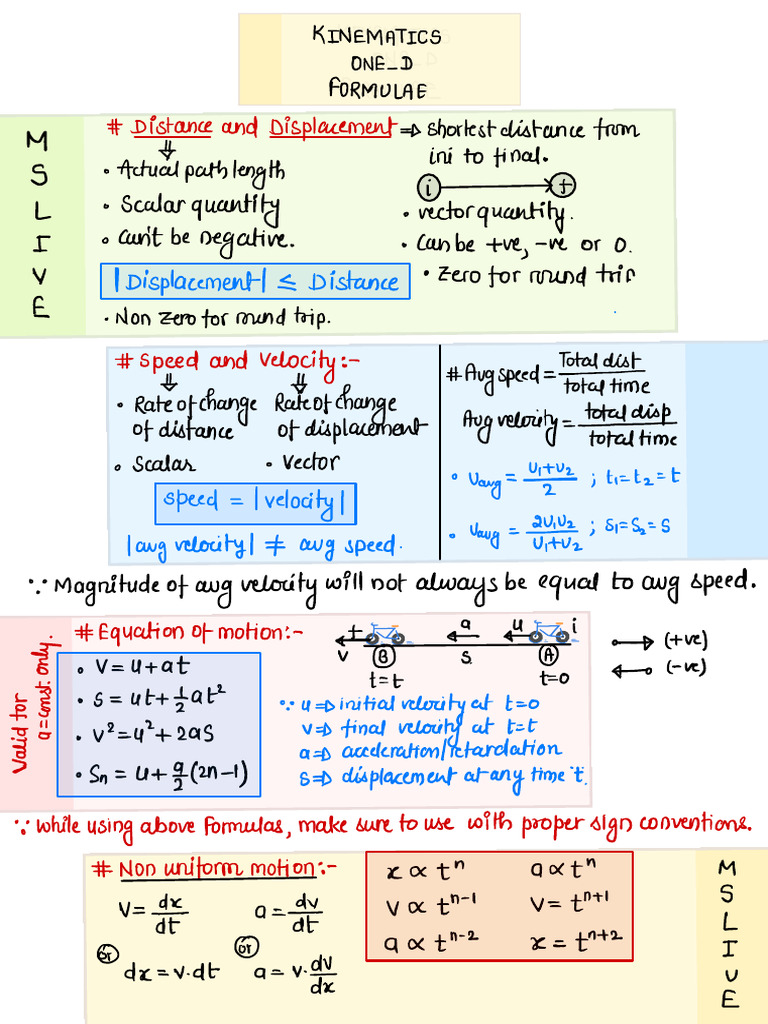 KINEMATICS
ONE_D
FORMULAE
MSLIVE
# Distance and Displacement ⇒ shortest distance from
ini to final.
• Actual path length
• Scalar quantity
• Can't be negative.
i → f
• vector quantity.
• Can be +ve, -ve or 0.
• Zero for round trip
|Displacement| ≤ Distance
• Non zero for round trip.
# Speed and Velocity:-
• Rate of change
of distance
• Scalar
Rate of change
of displacement
• Vector
speed = |velocity|
|avg velocity| ≠ avg speed.
# Avg speed = Total dist / total time
Avg velocity = total disp / total time
• υavg = (υ1+υ2)/2 ; t1=t2=t
• υavg = 2υ1υ2/(υ1+υ2) ; s1=s2=s
∵ Magnitude of avg velocity will not always be equal to avg speed.
Valid for
a=const. only.
# Equation of motion:-
• v = u+at
• s = ut+½at²
• v²=u²+2as
• Sn = u+a/2(2n-1)
f a u i
v B s A
t=t t=0
→ (+ve)
← (-ve)
∵ u⇒ initial velocity at t=0
v⇒ final velocity at t=t
a⇒ acceleration/retardation
s⇒ displacement at any time 't'.
∵ while using above formulas, make sure to use with proper sign conventions.
# Non uniform motion:-
v = dx/dt a = dv/dt
or dx = v.dt or a = v.dv/dx
x ∝ tⁿ a ∝ tⁿ
v ∝ tⁿ⁻¹ v = tⁿ⁺¹
a ∝ tⁿ⁻² x = tⁿ⁺²
MSLIVE